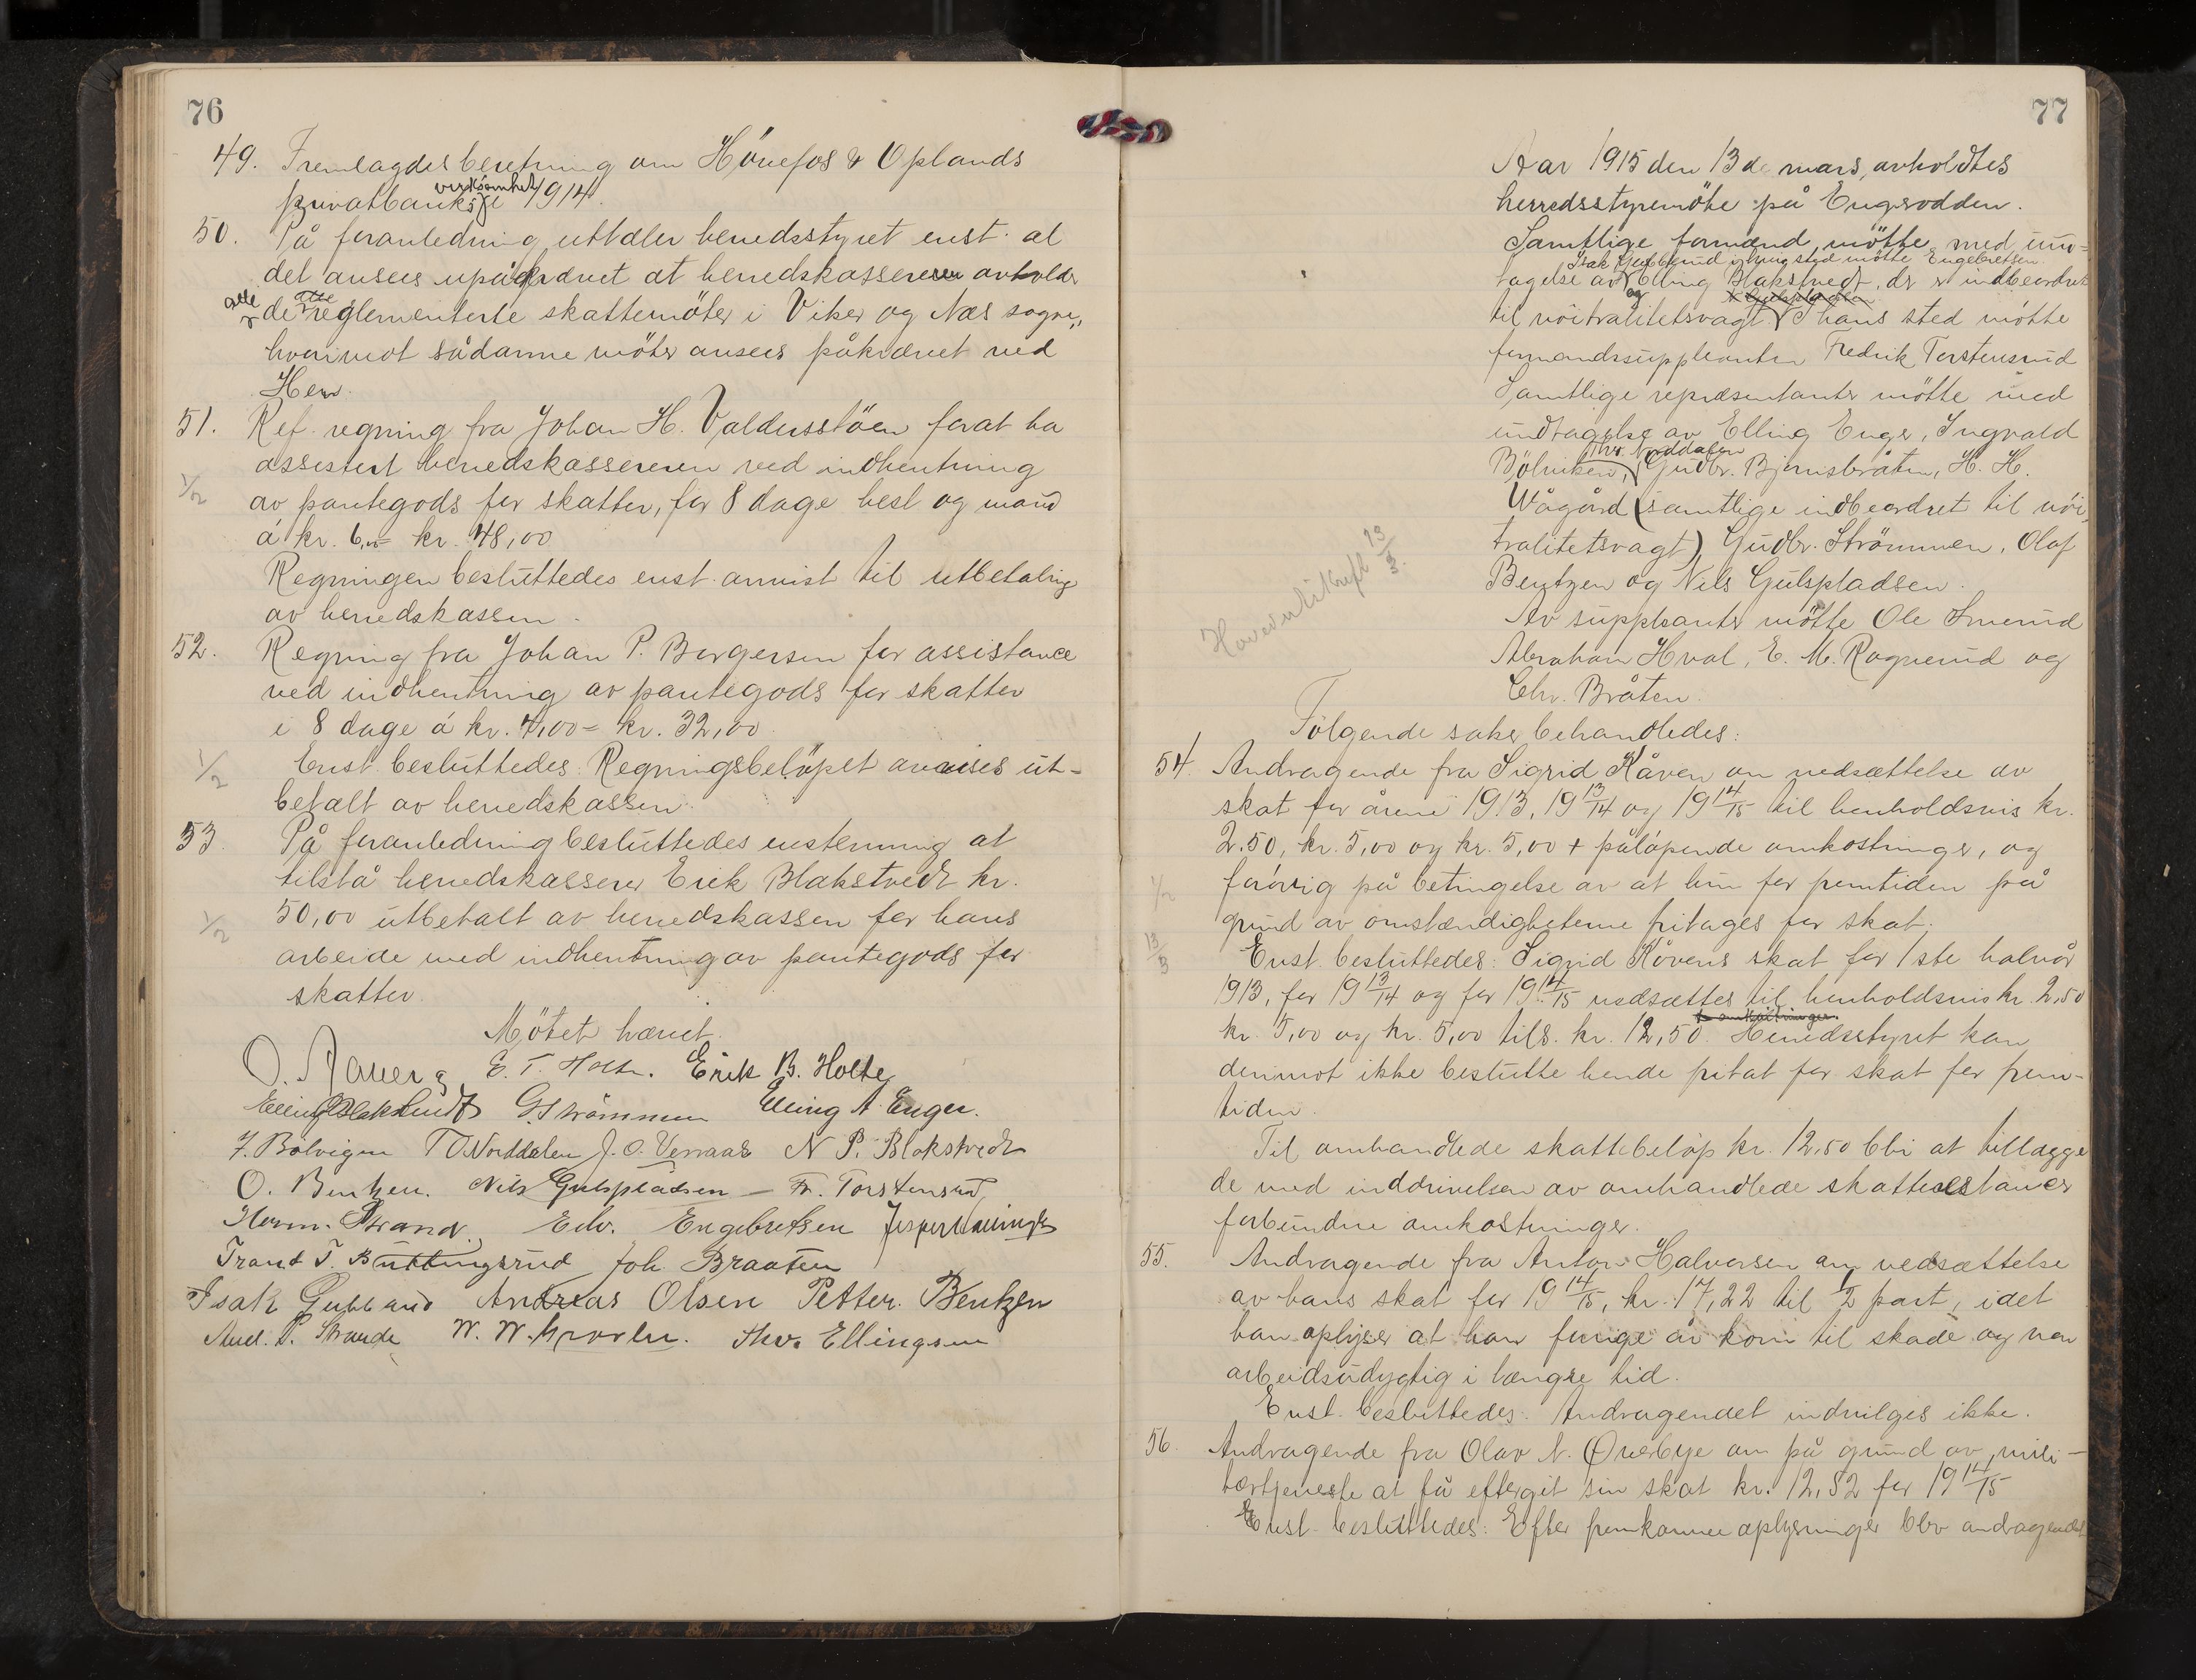 76
49. Fremlagdes beretning om Hönefos & Oplands
virksomhet
privatbanks i 1914.
50. På foranledning uttaler herredsstyret enst. at
det ansees upåkrævet at herredskassereren avholder
alle de reglementerte skattemöter i Viker og Nes sogne,
hvorimot sådanne möter ansees påkrævet ved
Hen.
51. Ref. regning fra Johan H. Valdersstöen forat ha
assistert herredskassereren ved indhentning
1/2
av pantegods for skatter, for 8 dage hest og mand
á kr. 6,00 = kr. 48,00
Regningen besluttedes enst. anvist til utbetaling
av herredskassen.
52. Regning fra Johan P. Borgersen for assistance
ved indhentning av pantegods for skatter
i 8 dage á kr. 4,00 = kr. 32,00
1/2
Enst. besluttedes: Regningsbelöpet anvises ut-
betalt av herredskassen.
53. På foranledning besluttedes enstemmig at
tilstå herredskasserer Erik Blakstvedt kr.
1/2
50,00 utbetalt av herredskassen for hans
arbeide med indhentning av pantegods for
skatter.
Mötet hævet.
O. Aaverg E. T. Holte. Erik B. Holte
Elling Blakstvedt G. Strömmen Elling A. Enger.
I. Bölvigen T O Norddalen J. O. Veraas N. P. Blakstvedt
O. Bentzen. Nils Gulspladsen — Fr. Torstensrud
Herm. Strand. Edv. Engebretsen
Trond T. Buttingsrud Joh. Braaten
Isak Gubberud Andreas Olsen Petter. Bentzen
And. P. Strande Thv. Ellingsen
77
Aar 1915 den 13de mars, avholdtes
herredsstyremöte på Engerodden.
Samtlige formænd mötte med und-
Isak Gubberud i hvis sted mötte Engebretsen
tagelse av Elling Blakstvedt, der er indbeordret
og
til nöitralitetsvagt. I hans sted mötte
formandssuppleanten Fredrik Torstensrud
Samtlige repræsentanter mötte med
undtagelse av Elling Enger, Ingvald
Thv. Norddalen
Bölviken, Gudbr. Bjørnsbråten, H. H.
Wågård (samtlige indbeordret til nöi-
tralitetsvagt), Gudbr. Strömmen, Olaf
Bentzen og Nils Gulspladsen.
13/3
Av suppleanter mötte Ole Smerud
Abraham Hval, E. M. Rognerud og
Chr. Bråten.
Følgende saker behandledes:
54. Andragende fra Sigrid Kåven om nedsættelse av
skat for årene 1913, 19 13/14 og 19 14/15 til henholdsvis kr.
2.50, kr. 5,00 og kr. 5,00 + påløpende omkostninger, og
1/2
forövrig på betingelse av at hun for fremtiden på
grund av omstændigheterne fritages for skat.
13/3
Enst. besluttedes: Sigrid Kåvens skat for 1ste halvår
1913, for 19 13/14 og for 19 14/15 nedsættes til henholdsvis kr. 2,50
+ omkostninger.
kr. 5,00 og kr. 5,00 tils. kr. 12,50. Herredsstyret kan
derimot ikke beslutte hende fritat for skat for frem-
tiden.
Til omhandlede skattebelöp kr. 12.50 blir at tillægge
de med inddrivelsen av omhandlede skatterestancer
forbundne omkostninger.
55. Andragende fra Anton Halvorsen om nedsættelse
av hans skat for 19 14/15, kr. 17,22 til 1/2 part, idet
han oplyser at han forrige år kom til skade og var
arbeidsudygtig i længre tid.
Enst. besluttedes: Andragendet indvilges ikke.
56. Andragende fra Olav N. Øverbye om på grund av mili-
tærtjeneste at få eftergit sin skat kr. 12,52 for 19 14/15
Enst. besluttedes: Efter fremkomne oplysninger blev andragendet